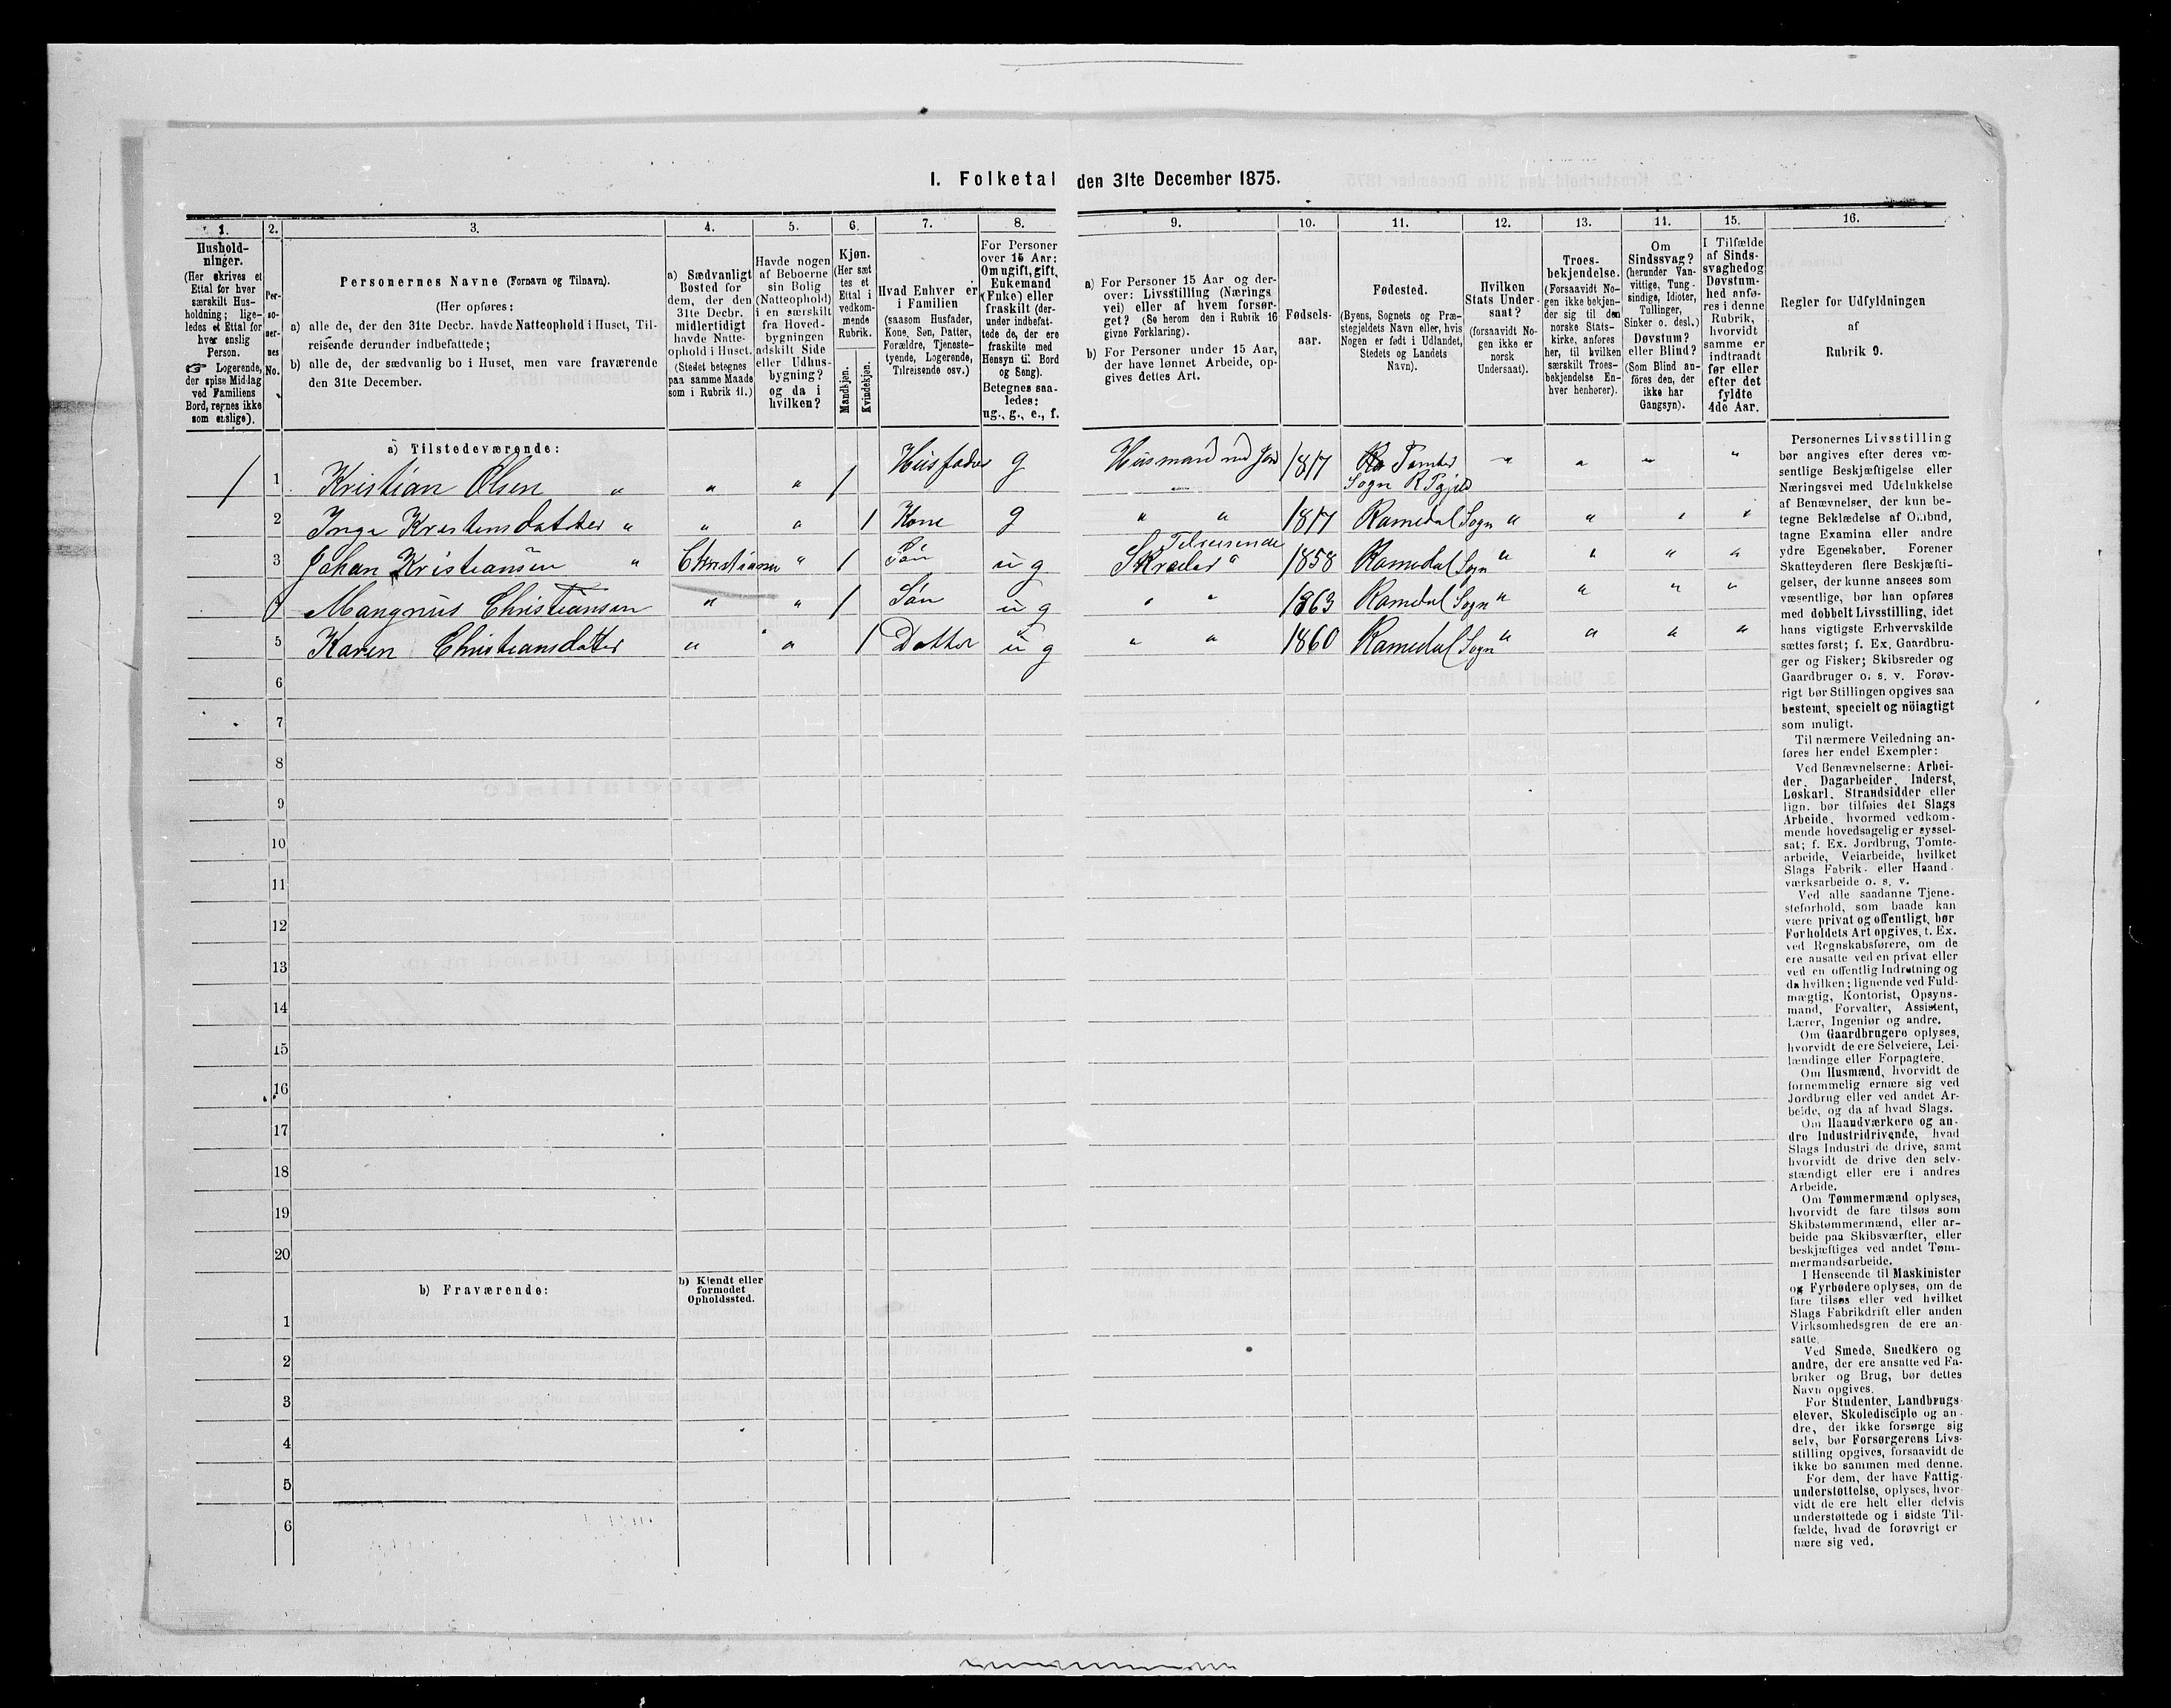 1. Folketal den 31te December 1875.
1.
Hushold-
ninger.
(Her skrives et
Ettal for hver
særskilt Hus-
holdning; lige-
ledes et Ettal for
hver enslig
Person.
☞ Logerende,
der spise Middag
ved Familiens
Bord, regnes ikke
som enslige).
2.
Per-
so-
ner-
nes
No.
3.
Personernes Navne (Fornavn og Tilnavn).
(Her opføres:
a) alle de, der den 31te Decbr. havde Natteophold i Huset, Til-
reisende derunder indbefattede;
b) alle de, der sædvanlig bo i Huset, men vare fraværende
den 31te December.
4.
a) Sædvanligt
Bosted for
dem, der den
31te Decbr.
midlertidigt
havde Natte-
ophold i Huset.
(Stedet betegnes
paa samme Maade
som i Rubrik 11.)
5.
Havde nogen
af Beboerne
sin Bolig
(Natteophold)
i en særskilt
fra Hoved-
bygningen
adskilt Side
eller Udhus-
bygning?
og da i
hvilken?
6.
Kjøn.
(Her sæt
tes et
Ettal i
vedkom-
mende
Rubrik.
Mandkjøn.
Kvindekjøn.
7.
Hvad Enhver er
i Familien
(saasom Husfader,
Kone, Søn, Datter,
Forældre, Tjeneste-
tyende, Logerende,
Tilreisende osv.)
8.
For Personer
over 15 Aar:
Om ugift, gift,
Enkemand
(Enke) eller
fraskilt (der-
under indbefat-
tede de, der ere
fraskilte med
Hensyn til Bord
og Seng).
Betegnes saa-
ledes:
ug., g., e., f.
9.
a) For Personer 15 Aar og der-
over: Livsstilling (Nærings
vei) eller af hvem forsør-
get? (Se herom den i Rubrik 16
givne Forklaring).
b) For Personer under 15 Aar,
der have lønnet Arbeide, op-
gives dettes Art.
10.
Fødsels-
aar.
11.
Fødested.
(Byens, Sognets og Præ-
stegjeldets Navn eller, hvis
Nogen er født i Udlandet,
Stedets og Landets
Navn).
12.
Hvilken
Stats Under-
saat?
(forsaavidt No-
gen ikke er
norsk
Undersaat).
13.
Troes-
bekjendelse.
(Forsaavidt No-
gen ikke bekjen-
der sig til den
norske Stats-
kirke, anføres
her, til hvilken
særskilt Troes-
bekjendelse En-
hver henhører).
14.
Om
Sindssvag?
(herunder Van-
vittige, Tung-
sindige, Idioter,
Tullinger,
Sinker o. desl.)
Døvstum?
eller Blind?
(Som Blind an-
føres den, der
ikke har
Gangsyn).
15.
I Tilfælde
af Sinds-
svaghed og
Døvstum-
hed anfø-
res i denne
Rubrik,
hvorvidt
samme er
indtraadt
før eller
efter det
fyldte
4de Aar.
16.
Regler for Udfyldningen
af
Rubrik 9.
a) Tilstedeværende:
1 1 Kristian Olsen " " " 1 Husfader g Husmand med Jord 1817 Tomter Sogn " " " "
2 Inge Kristensdatter " " " 1 Kone g " " 1817 Romedal Sogn " " " "
3 Johan Kristiansen " Christiania " 1 Søn ug Skræder Tilreisende " 1858 Romedal Sogn " " " "
Mangnus Christiansen " " 1 Søn ug " " 1863 Romedal Sogn " " " "
5 Karen Christiansdatter " " 1 Datter ug " " 1860 Romedal Sogn " " " "
6
7
8
9
10
11
12
13
14
15
16
17
18
19
20
b) Fraværende:
b) Kjendt eller
formodet
Opholdssted.
1
2
3
4
5
6
Personernes Livsstilling
bør angives efter deres væ-
sentlige Beskjæftigelse eller
Næringsvei med Udelukkelse
af Benævnelser, der kun be-
tegne Beklædelse af Ombud,
tagne Examina eller andre
ydre Egenskaber. Forener
Skatteyderen flere Beskjæfti-
gelser, der kunne ansees som
væsentlige, bør han opføres
med dobbelt Livsstilling, idet
hans vigtigste Erhvervskilde
sættes først; f. Ex. Gaardbru-
ger og Fisker; Skibsreder og
Gaardbruger o. s. v. Forøv-
rigt bør Stillingen opgives saa
bestemt, specielt og nöiagtigt
som muligt.
Til nærmere Veiledning an-
føres her endel Exempler:
Ved Benævnelserne: Arbei-
der, Dagarbeider, Inderst,
Løskarl, Strandsidder eller
lign. bør tilføies det Slags
Arbeide, hvormed vedkom-
mende hovedsagelig er syssel-
sat; f. Ex. Jordbrug, Tomte-
arbeide, Veiarbeide, hvilket
Slags Fabrik- eller Haand-
værksarbeide o. s. v.
Ved alle saadanne Tjene-
steforhold, som baade kan
være privat og offentligt, bør
Forholdets Art opgives, t. Ex.
ved Regnskabsførere, om de
ere ansatte ved en privat eller
ved en offentlig Indretning og
da hvilken; lignende ved Fuld-
mægtig, Kontorist, Opsyns-
mand, Forvalter, Assistent,
Lærer, Ingeniør og andre.
Om Gaardbrugere oplyses,
hvorvidt de ere Selveiere, Lei-
lændinge eller Forpagtere.
Om Husmænd, hvorvidt de
fornemmelig ernære sig ved
Jordbrug eller ved andet Ar-
beide, og da af hvad Slags.
Om Haandværkere og an-
dre Industridrivende, hvad
Slags Industri de drive, samt
hvorvidt de drive den selv-
stændigt eller ere i andres
Arbeide.
Om Tømmermænd oplyses,
hvorvidt de fare tilsøs som
Skibstømmermænd, eller ar-
beide paa Skibsværfter, eller
beskjæftiges ved andet Tøm-
mermandsarbeide.
I Henseende til Maskinister
og Fyrbødere oplyses, om de
fare tilsøs eller ved hvilket
Slags Fabrikdrift eller anden
Virksomhedsgren de ere an-
satte.
Ved Smede, Snedkere og
andre, der ere ansatte ved Fa-
briker og Brug, bør dettes
Navn opgives.
For Studenter, Landbrugs-
elever, Skoledisciple og an-
dre, der ikke forsørge sig
selv, bør Forsørgerens Livs-
stilling opgives, forsaavidt de
ikke bo sammen med denne.
For dem, der have Fattig-
understøttelse, oplyses, hvor-
vidt de ere helt eller delvis
understøttede og i sidste Til-
fælde, hvad de forøvrigt er
nære sig ved.